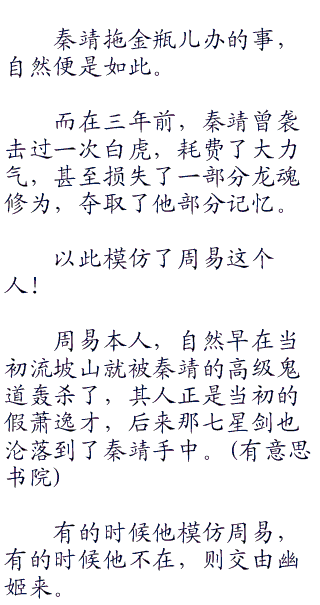 秦靖拖金瓶儿办的事，
自然便是如此。
而在三年前，秦靖曾袭
击过一次白虎，耗费了大力
气，甚至损失了一部分龙魂
修为，夺取了他部分记忆。
以此模仿了周易这个
人！
周易本人，自然早在当
初流坡山就被秦靖的高级鬼
道轰杀了，其人正是当初的
假萧逸才，后来那七星剑也
沦落到了秦靖手中。(有意思
书院)
有的时候他模仿周易，
有的时候他不在，则交由幽
姬来。